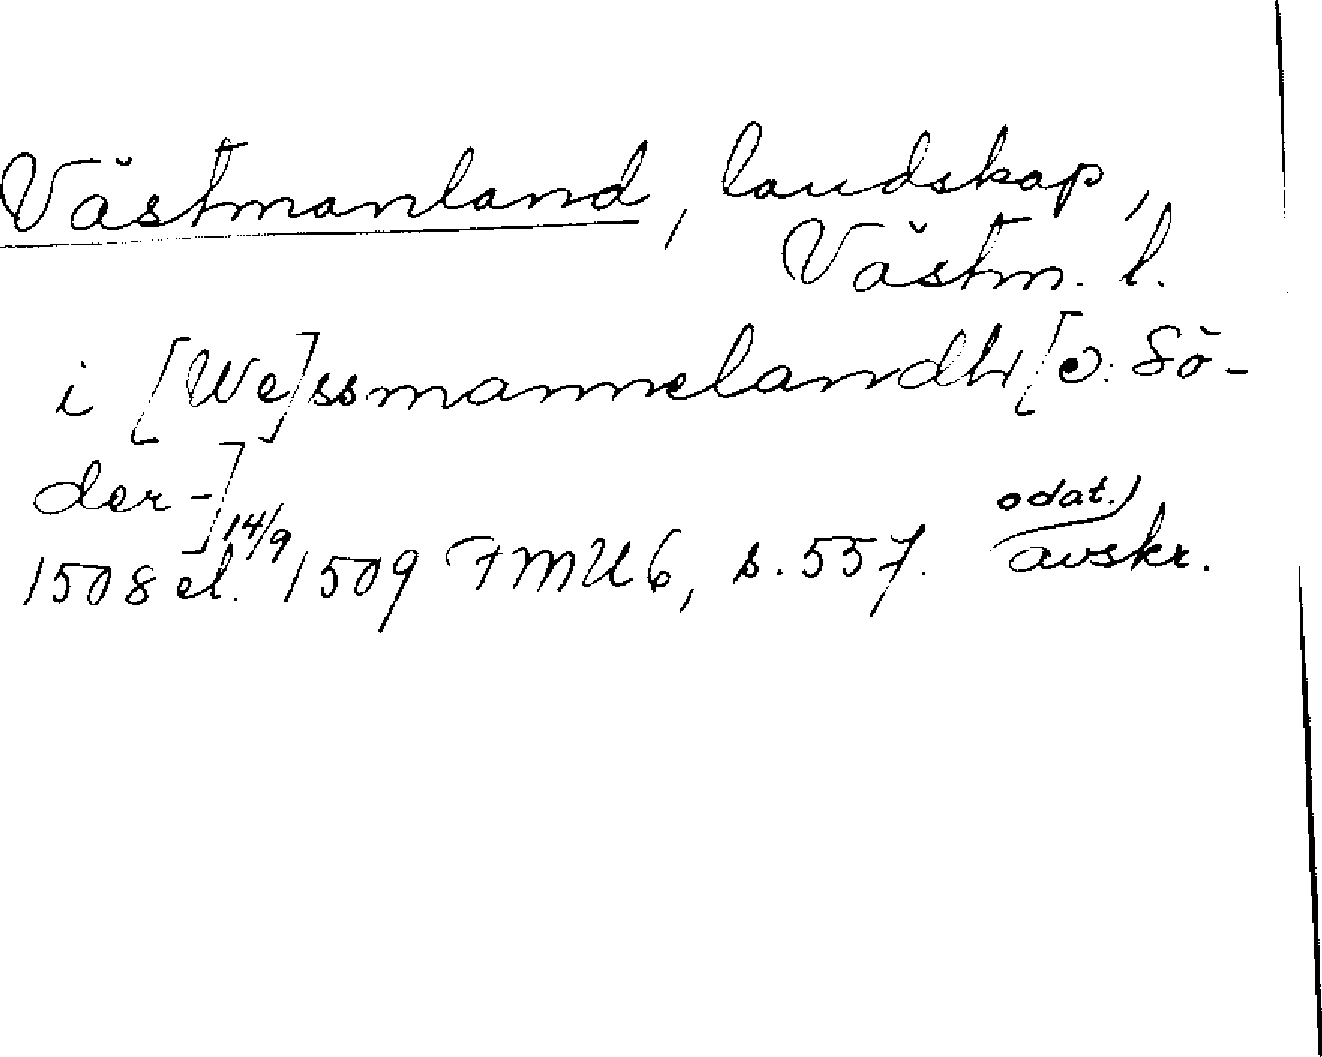 Västmanland, landskap,
Västm. l.
i [We]ssmannelandh [o. Sö-
der-]
1508 el. 14/9 1509 FMU 6, s. 557. odat.) avskr.